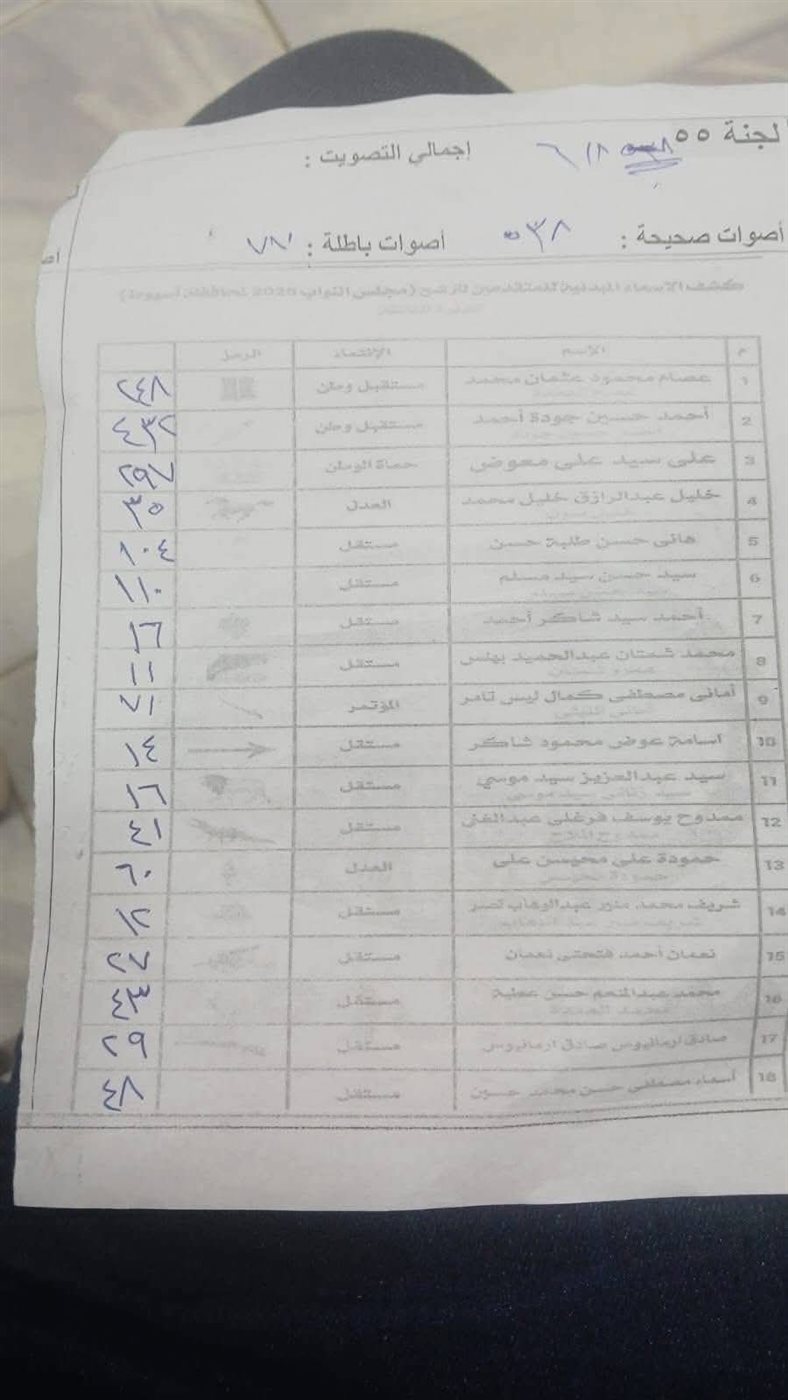 لجنة ٥٥
إجمالي التصويت : ٦١٨
أصوات صحيحة : ٥٣٨ أصوات باطلة :
كشف الاسماء المبدئية للمتقدمين للترشح (مجلس النواب 2025 لمحافظة أسيوط)
م الاسم الانتماء الرمز
1 عصام محمود عثمان محمد مستقبل وطن ٢٤٨
2 أحمد حسين جودة أحمد مستقبل وطن ٤٣٢
3 على سيد على معوض حماة الوطن
4 خليل عبدالرازق خليل محمد العدل ٣٥
5 هانى حسن طلبة حسن مستقل ١٠٤
6 سيد حسن سيد مسلم مستقل ١١٠
7 أحمد سيد شاكر أحمد مستقل ١٦
8 محمد شعتان عبدالحميد بهنس مستقل ١١
9 أمانى مصطفى كمال ليس تامر المؤتمر ٧١
10 اسامة عوض محمود شاكر مستقل ١٤
11 سيد عبدالعزيز سيد موسي مستقل ١٦
12 ممدوح يوسف فرغلى عبدالغنى مستقل ٤١
13 حمودة على محيسن على العدل ٦٠
14 شريف محمد منير عبدالوهاب نصر مستقل ١٢
15 نعمان أحمد فتحى نعمان مستقل ٢٦
16 محمد عبدالمنعم حسن عطية مستقل ٣٤
17 صادق ارمانيوس صادق ارمانيوس مستقل ٢٩
18 أسماء مصطفى حسن محمد حسين مستقل ٤٨